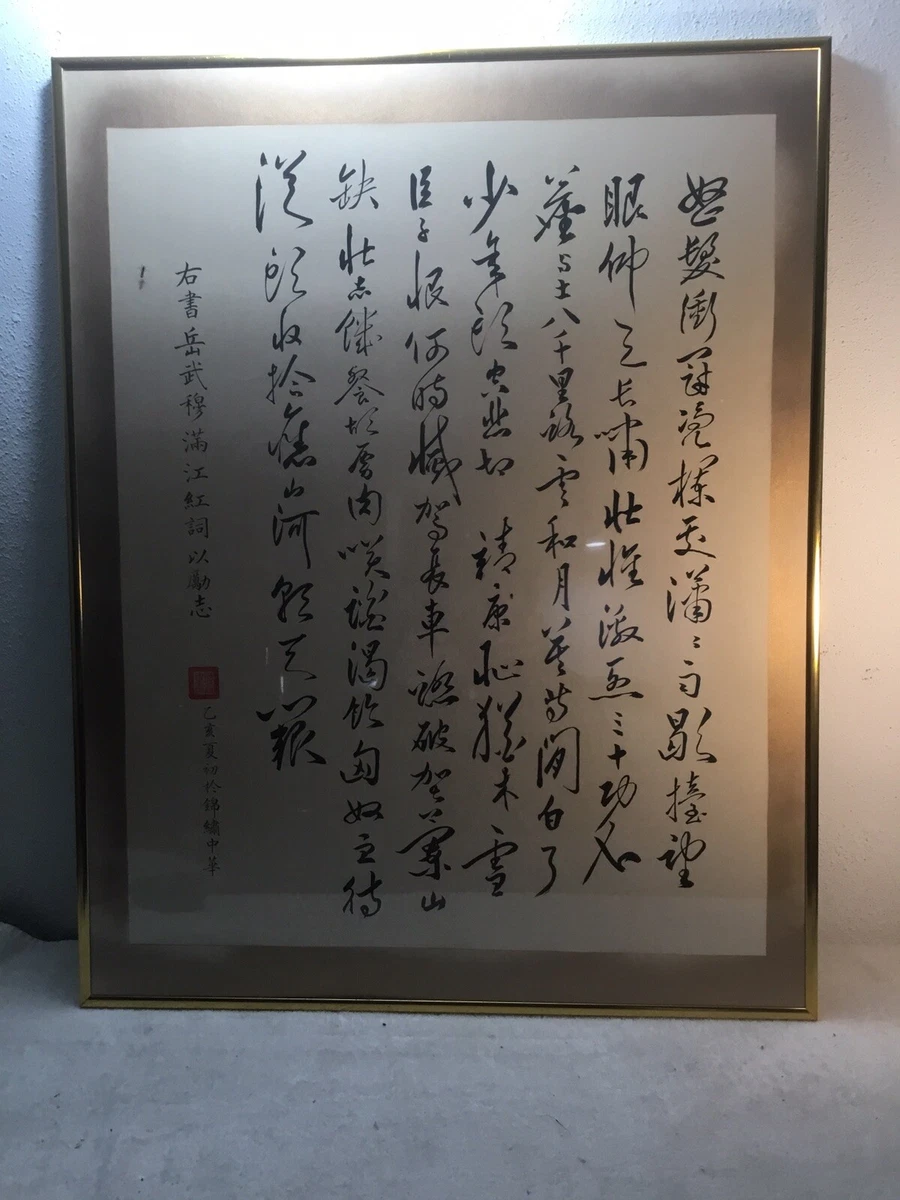 怒髮衝冠憑欄處瀟〻雨歇擡望
眼仰天長嘯壯懷激烈三十功名
塵与土八千里路雲和月莫等閒白了
少年頭空悲切 靖康恥猶未雪
臣子恨何時憾駕長車踏破賀蘭山
缺壯志饑餐胡虜肉笑談渴飲匈奴血待
從頭收拾舊山河朝天闕
右書岳武穆滿江紅詞以勵志
乙亥夏初於錦繡中華